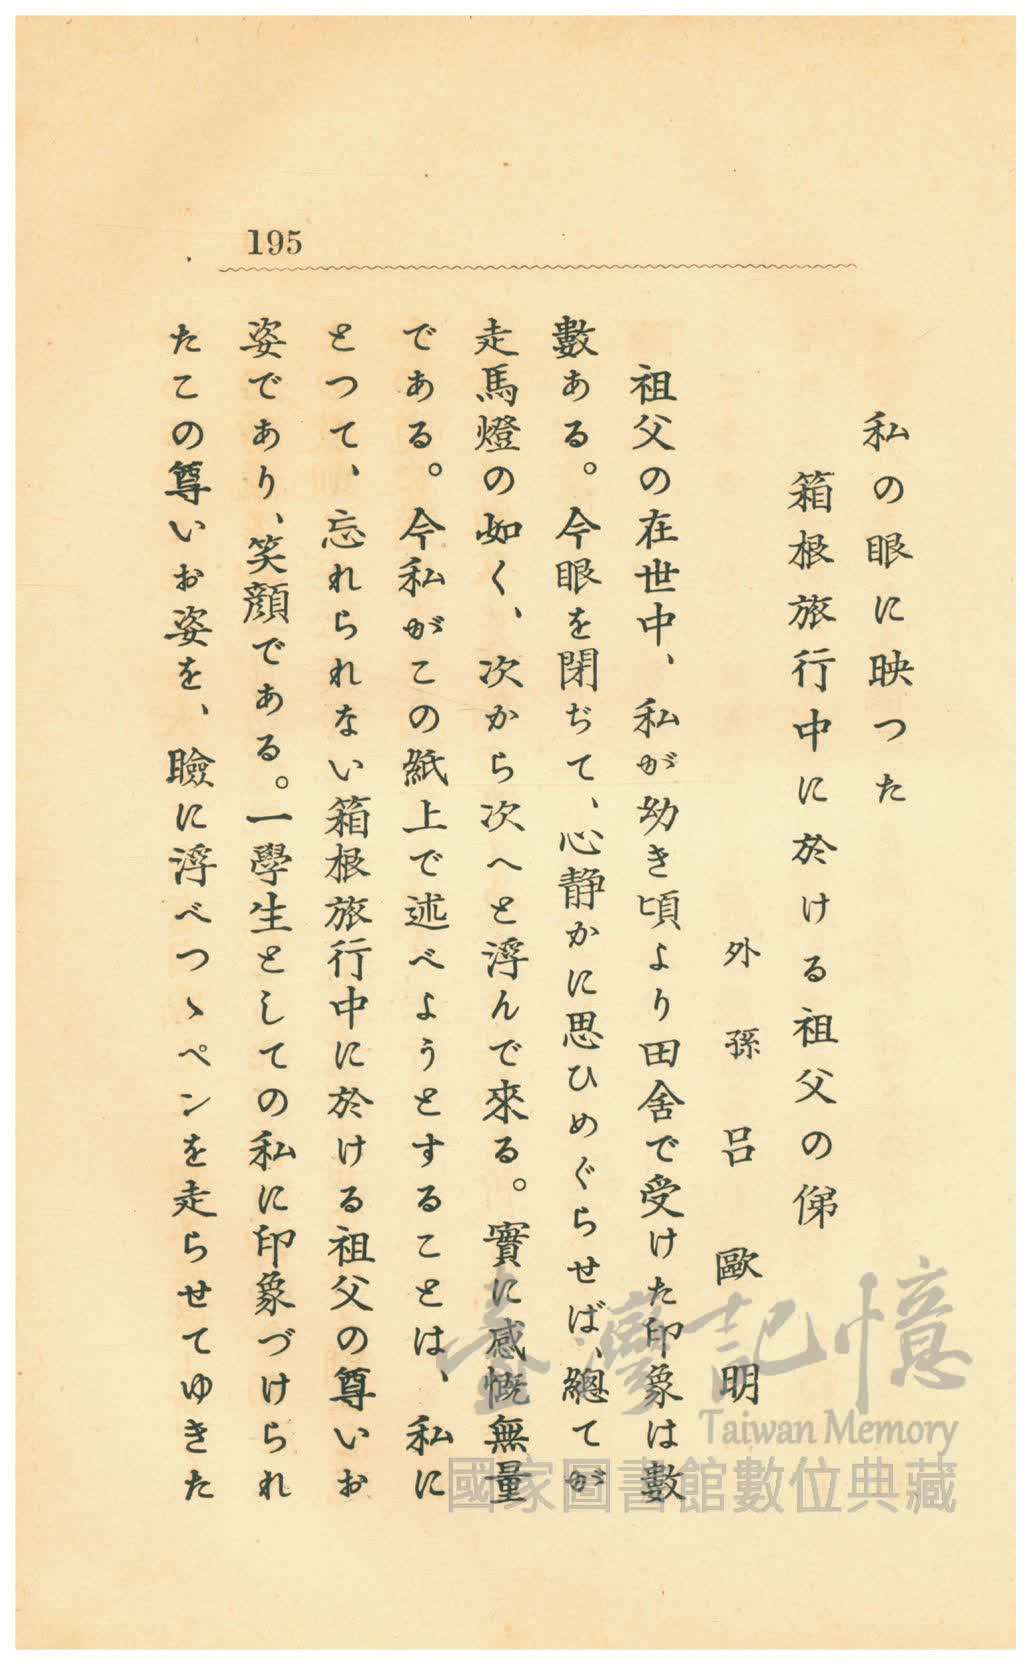 195
私の眼に映つた
箱根旅行中に於ける祖父の俤
外孫 呂歐明
祖父の在世中、私が幼き頃より田舍で受けた印象は數
數ある。今眼を閉ぢて、心靜かに思ひめぐらせば、總てが
走馬燈の如く、次から次へと浮んで來る。實に感慨無量
である。今私がこの紙上で述べようとすることは、私に
とつて、忘れられない箱根旅行中に於ける祖父の尊いお
姿であり、笑顔である。一學生としての私に印象づけられ
たこの尊いお姿を、瞼に浮べつゝペンを走らせてゆきた
臺灣記憶
Taiwan Memory
國家圖書館數位典藏